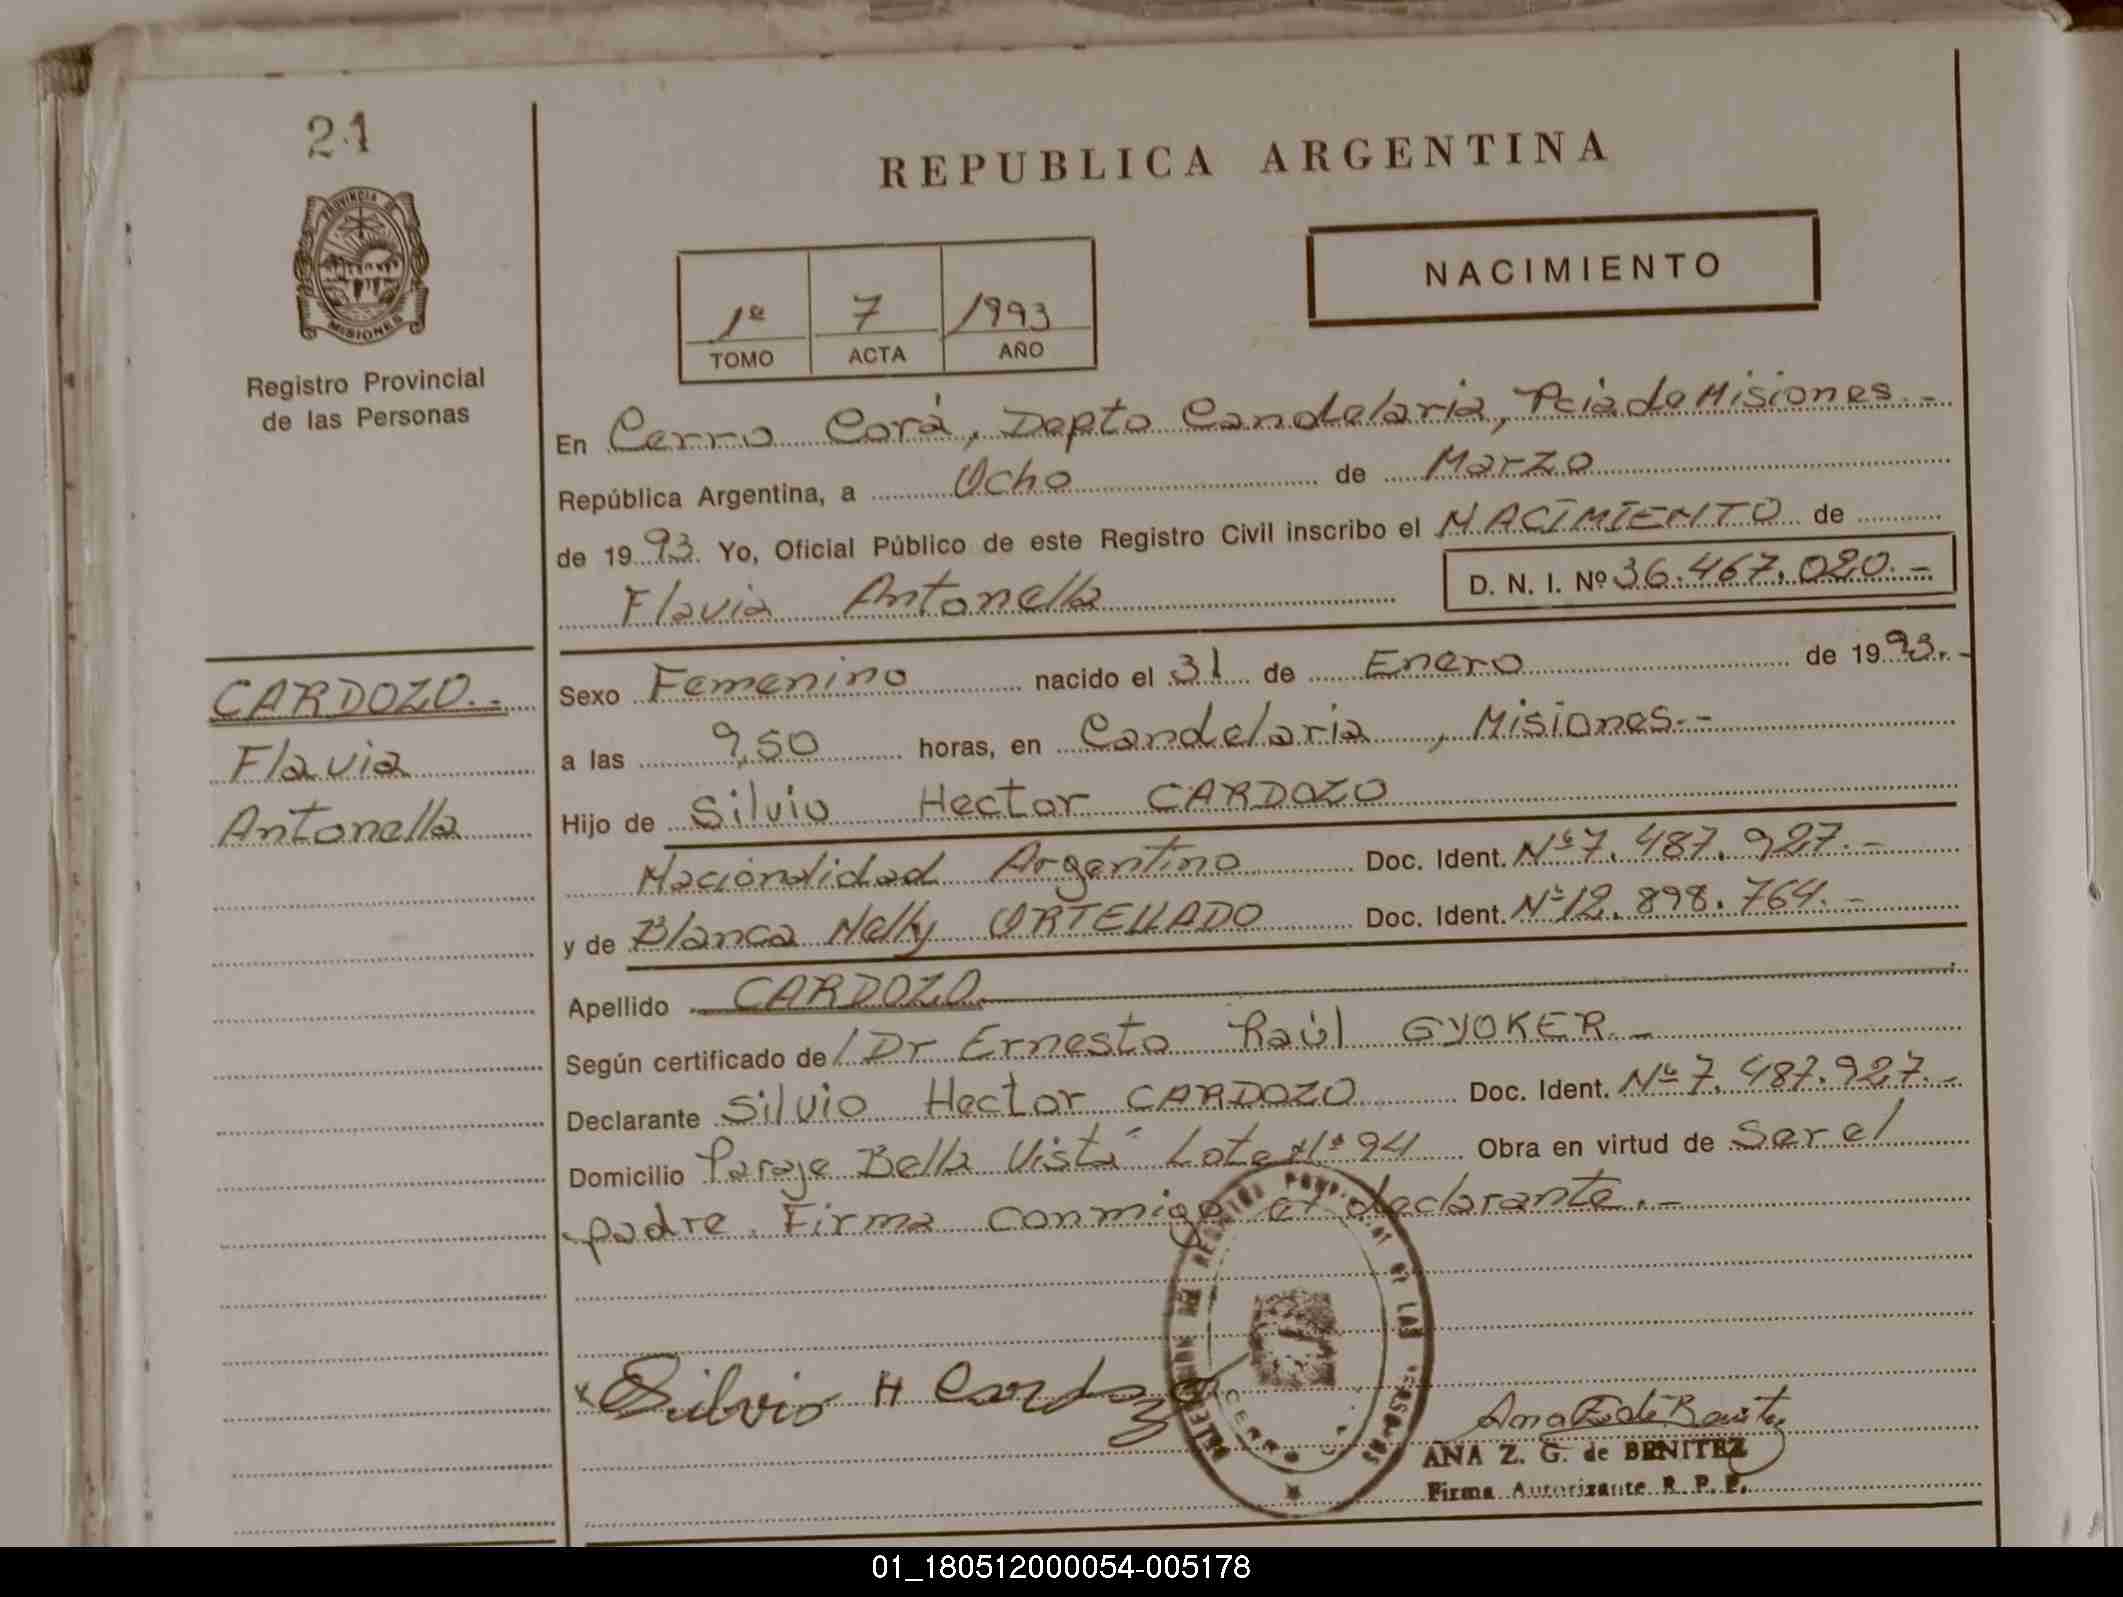 21
REPUBLICA ARGENTINA
PROVINCIA DE
MISIONES
Registro Provincial
de las Personas
NACIMIENTO
1º 7 1993
TOMO ACTA AÑO
En Cerro Corá, Depto Candelaria, Pcia de Misiones.-
República Argentina, a Ocho de Marzo
de 1993. Yo, Oficial Público de este Registro Civil inscribo el NACIMIENTO de
Flavia Antonella
D. N. I. Nº 36.467.020.-
CARDOZO.-
Flavia
Antonella
Sexo Femenino nacido el 31 de Enero de 1993.-
a las 9,50 horas, en Candelaria, Misiones.-
Hijo de Silvio Hector CARDOZO
Nacionalidad Argentino Doc. Ident. Nº 7.487.927.-
y de Blanca Nelly ORTELLADO Doc. Ident. Nº 12.898.764.-
Apellido CARDOZO
Según certificado de / Dr Ernesto Raúl GYOKER.-
Declarante Silvio Hector CARDOZO Doc. Ident. Nº 7.487.927.-
Domicilio Paraje Bella Vista Lote Nº 94 Obra en virtud de Ser el
padre. Firma conmigo el declarante.-
Silvio H Cardozo
DELEGACION DEL REGISTRO PROVINCIAL DE LAS PERSONAS
CERRO
Ana Z de Benitez
ANA Z. G. de BENITEZ
Firma Autorizante R. P. P.
01_180512000054-005178